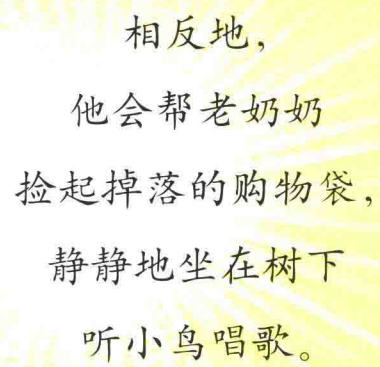 相反地，
他会帮老奶奶
捡起掉落的购物袋，
静静地坐在树下
听小鸟唱歌。